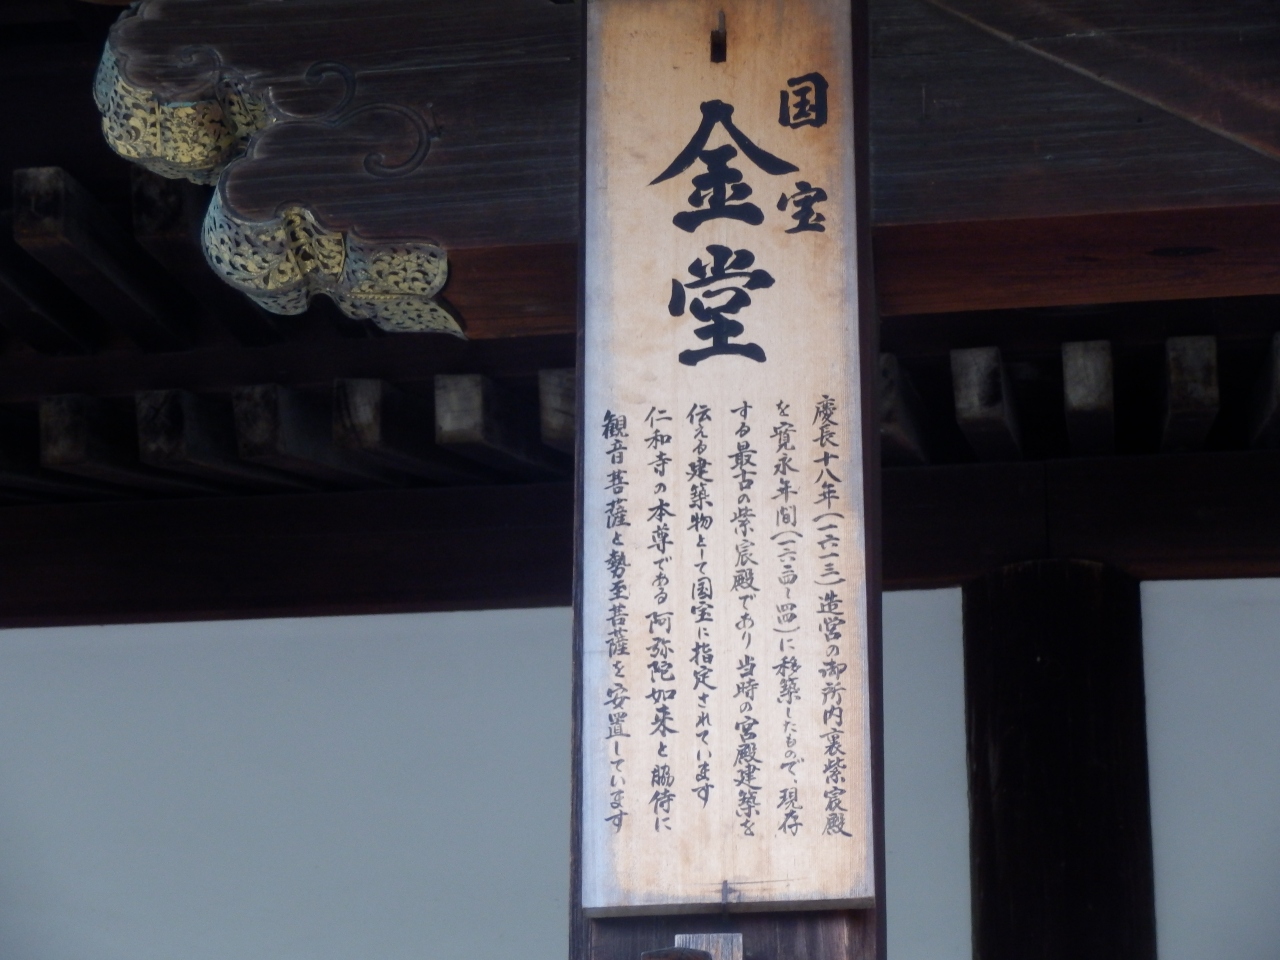 国宝
金堂
慶長十八年(一六一三)造営の御所内裏紫宸殿
を寛永年間(一六二四〜四四)に移築したもので、現存
する最古の紫宸殿であり当時の宮殿建築を
伝える建築物として国宝に指定されています
仁和寺の本尊である阿弥陀如来と脇侍に
観音菩薩と勢至菩薩を安置しています